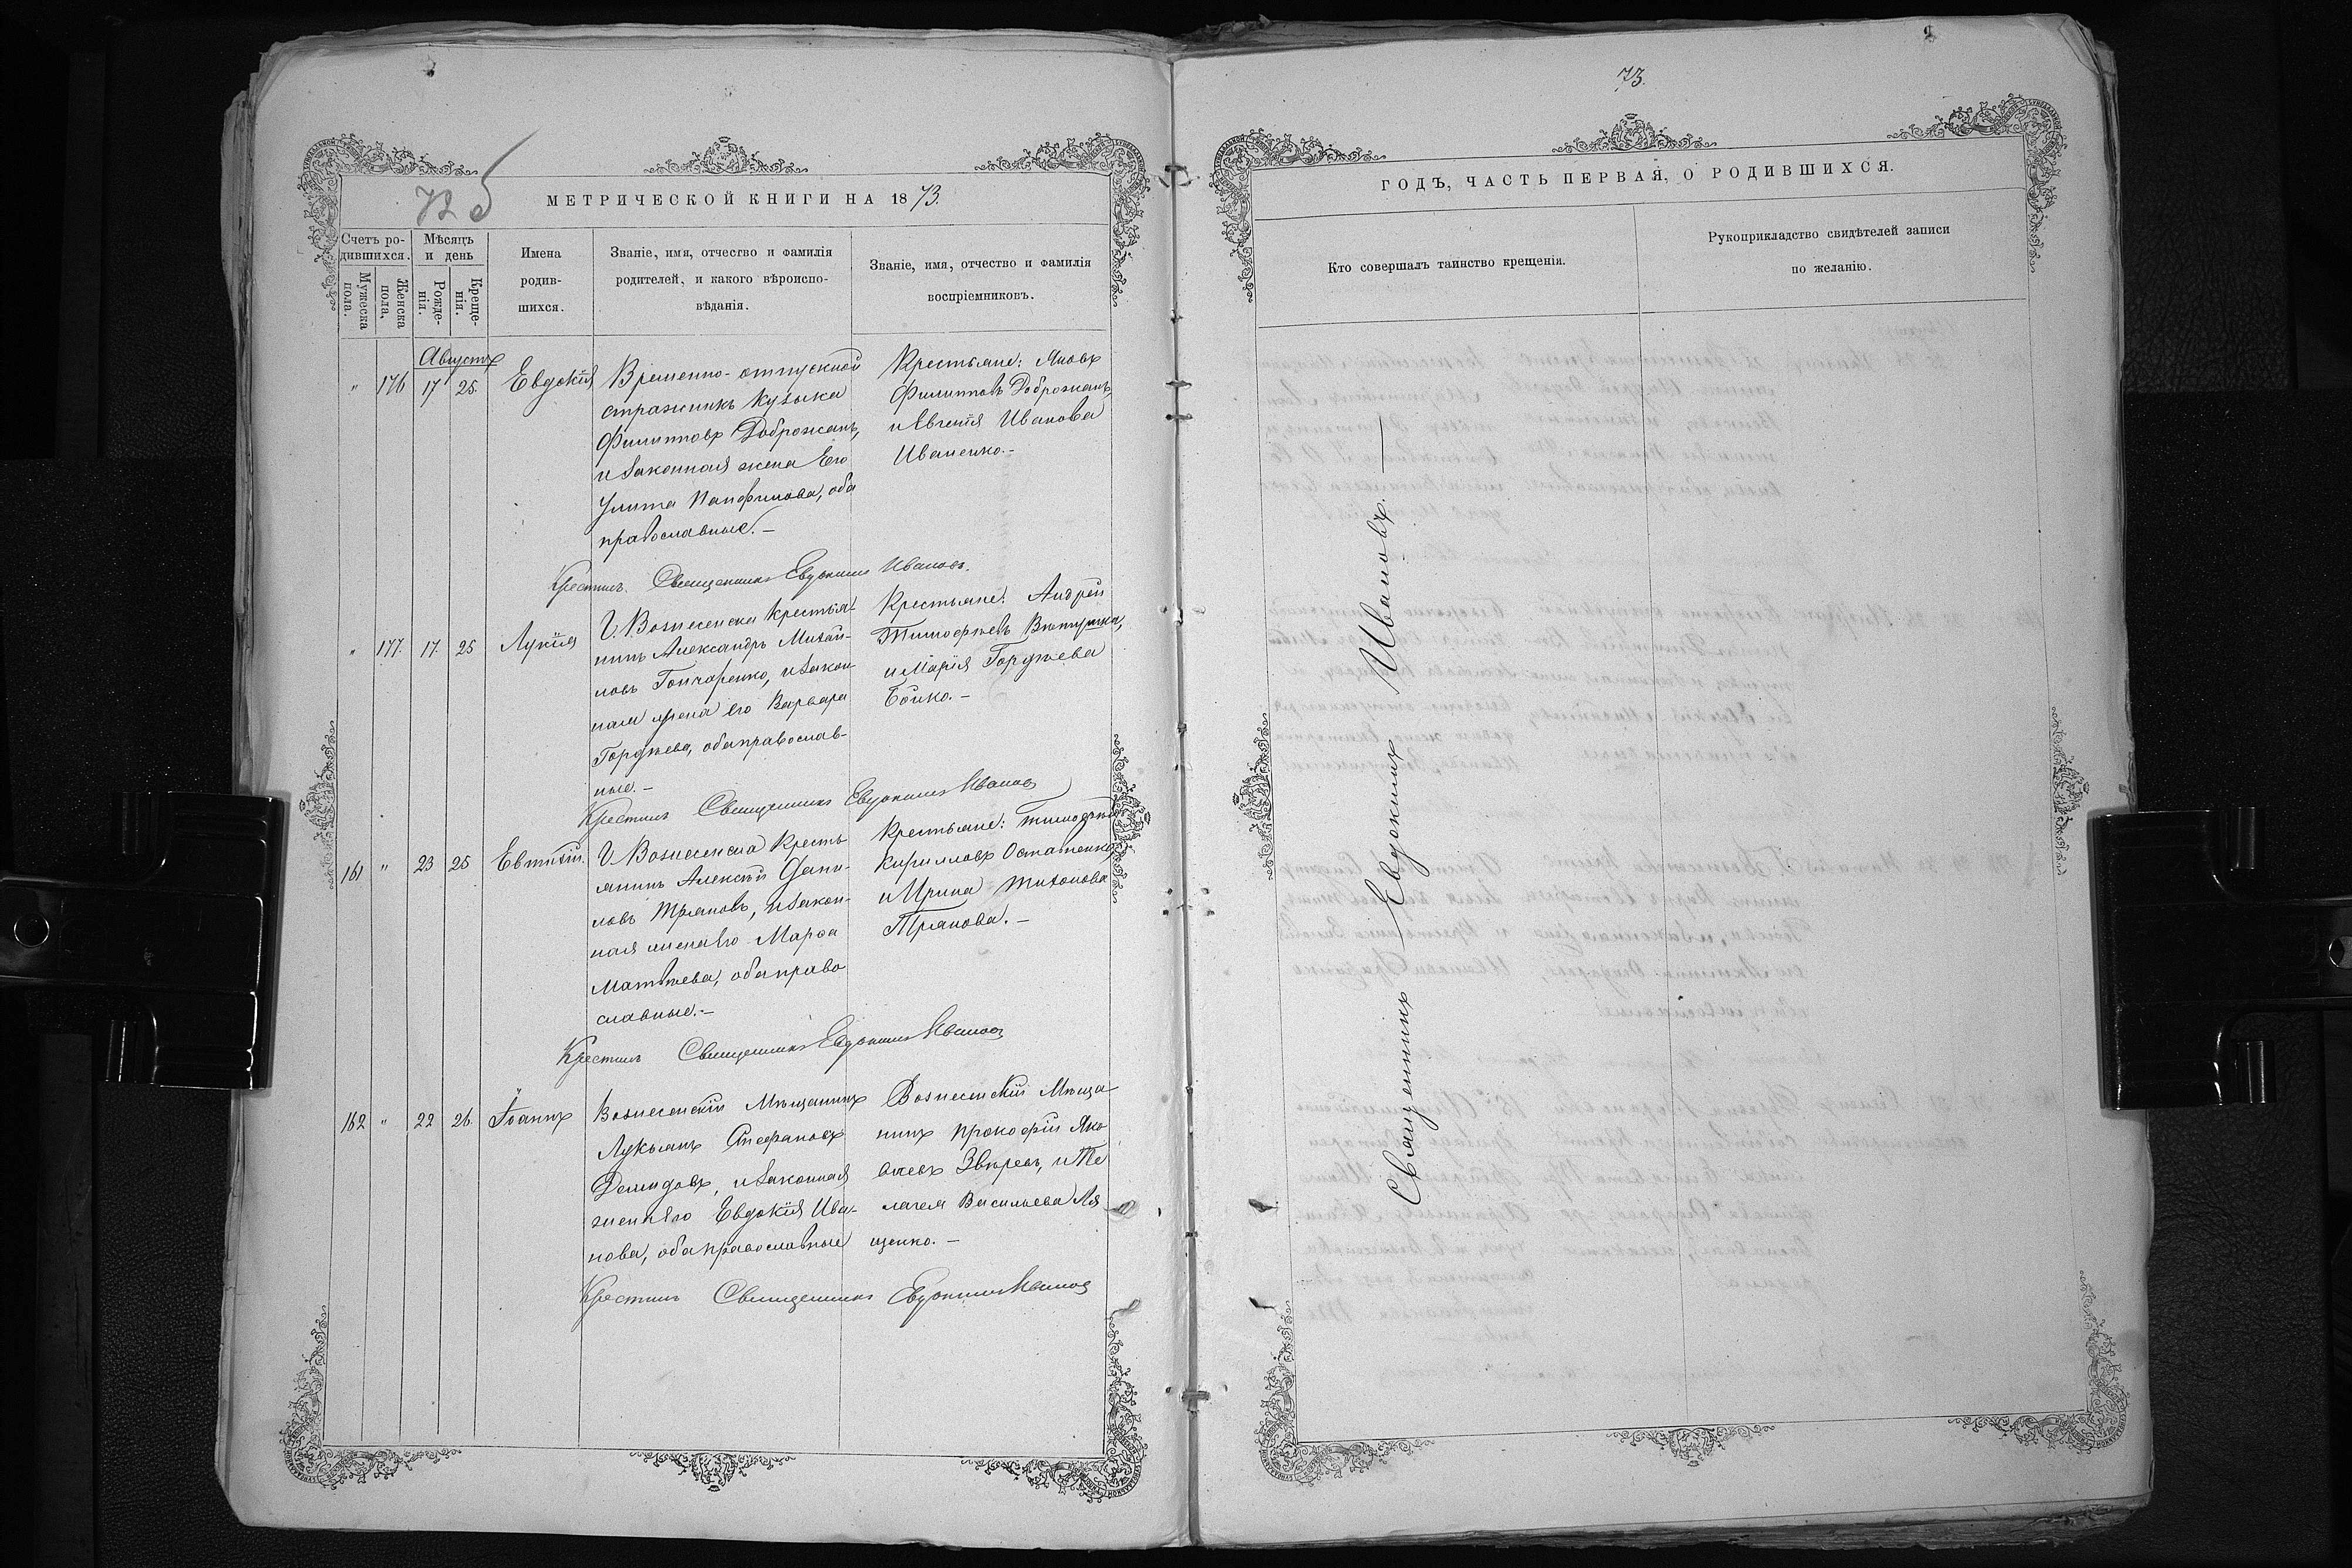 72 б
МЕТРИЧЕСКОЙ КНИГИ НА 1873.
Счетъ ро-
дившихся.
Мужеска пола.
Женска пола.
Мѣсяцъ
и день
Рожде-
нія.
Креще-
нія.
Имена
родив-
шихся.
Званіе, имя, отчество и фамилія
родителей, и какого вѣроиспо-
вѣданія.
Званіе, имя, отчество и фамилія
воспріемниковъ.
Августъ
" 176 17 25. Евдокія
Временно-отпускной
стражникъ Кузьма
Филипповъ Доброжанъ,
и законная жена Его
Улита Панфилова, оба
православные.-
Крестьяне: Яковъ
Филипповъ Доброжанъ,
и Евгенія Иванова
Иваненко.-
Крестилъ Священникъ Евдокимъ Ивановъ.
" 177. 17. 25 Лукія
Г. Вознесенска крестья-
нинъ Александръ Михай-
ловъ Гончаренко, и закон-
ная жена его Варвара
Гордѣева, оба православ-
ные.-
Крестьяне: Андрей
Тимофѣевъ
и Марія Гордѣева
Бойко.-
Крестилъ Священникъ Евдокимъ Ивановъ
161 " 23 25 Евтихій.
Г. Вознесенска Кресть
янинъ Алексѣй Дани-
ловъ Трановъ, и закон-
ная жена его Марѳа
Матвѣева, оба право
славные.-
Крестьяне: Тимофѣй
Кирилловъ Остапенко
и Ирина Тихонова
Транова.-
Крестилъ Священникъ Евдокимъ Ивановъ
162 " 22 26. Іоаннъ
Вознесенскій Мѣщанинъ
Лукьянъ Стефановъ
Демидовъ, и законная
жена его Евдокія Ива-
нова, оба православные
Вознесенскій Мѣща-
нинъ Прокофій Яко
влевъ Звѣревъ, и Пе
лагея Васильева Ля
щенко.-
Крестилъ Священникъ Евдокимъ Ивановъ
73.
ГОДЪ, ЧАСТЬ ПЕРВАЯ, О РОДИВШИХСЯ.
Кто совершалъ таинство крещенія.
Рукоприкладство свидѣтелей записи
по желанію.
Священникъ Евдокимъ Ивановъ.